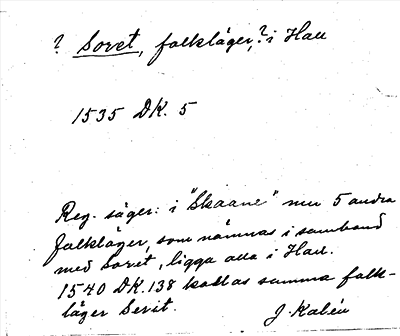 ? Soret, falkläger,? i Hall
1535 DK. 5
Reg. säger: i "Skaane" men 5 andra
falkläger, som nämnas i samband
med Soret, ligga alla i Hall.
1540 DK. 138 kallas samma falk-
läger Serit.
J. Kalén